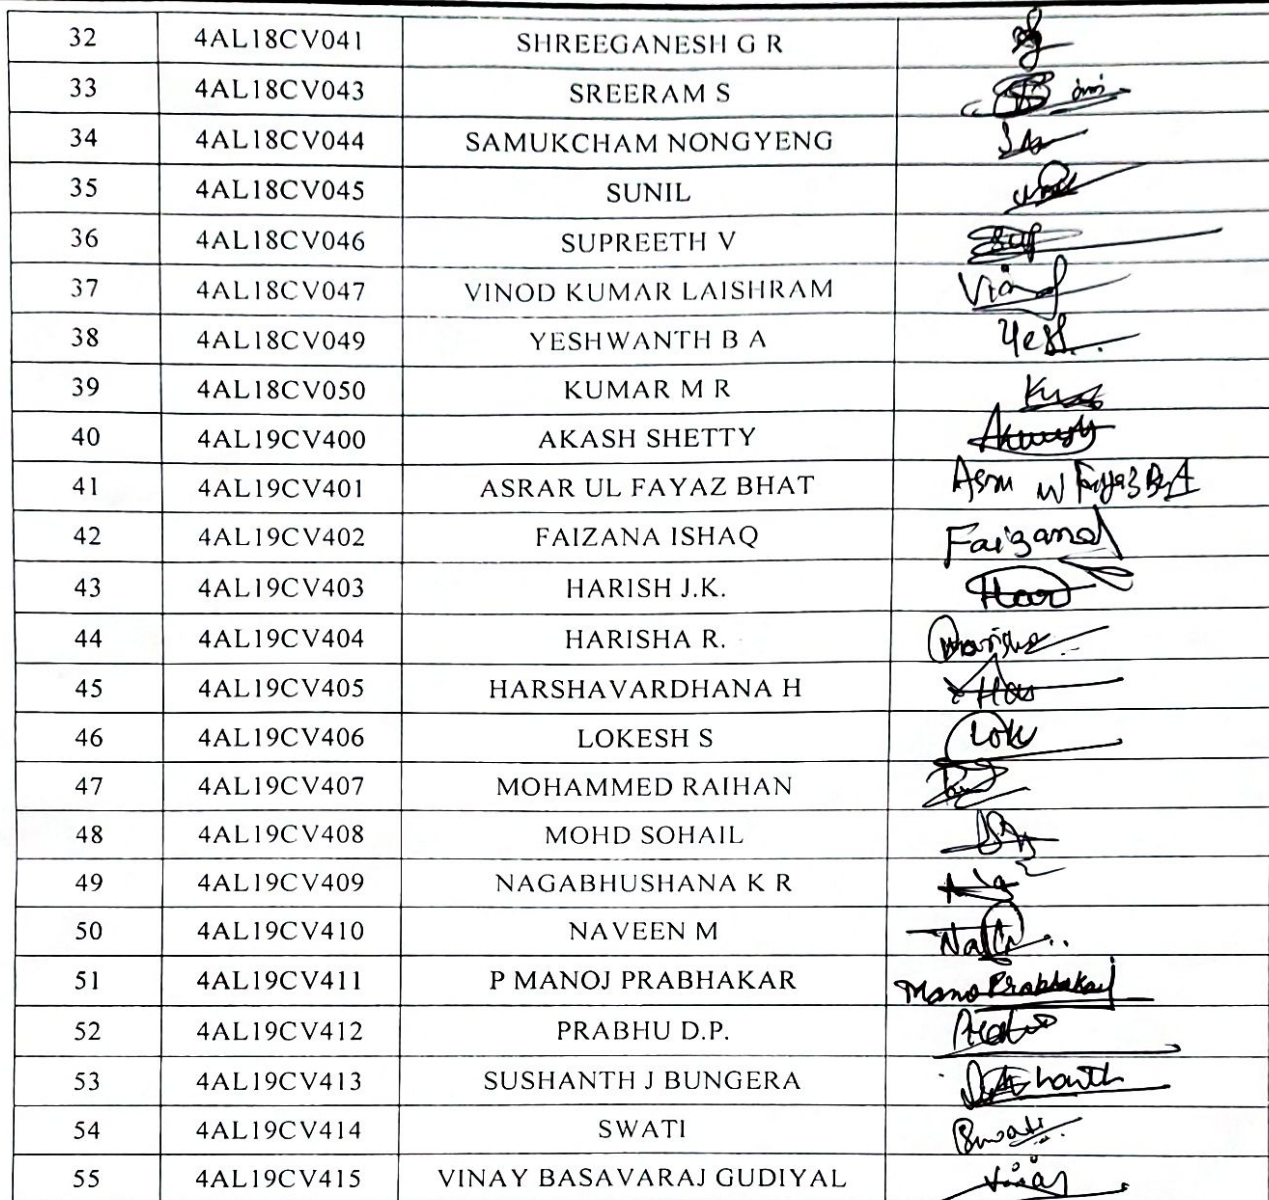 32 4AL18CV041 SHREEGANESH G R
33 4AL18CV043 SREERAM S
34 4AL18CV044 SAMUKCHAM NONGYENG
35 4AL18CV045 SUNIL
36 4AL18CV046 SUPREETH V
37 4AL18CV047 VINOD KUMAR LAISHRAM
38 4AL18CV049 YESHWANTH B A
39 4AL18CV050 KUMAR M R
40 4AL19CV400 AKASH SHETTY
41 4AL19CV401 ASRAR UL FAYAZ BHAT
42 4AL19CV402 FAIZANA ISHAQ Faizana
43 4AL19CV403 HARISH J.K.
44 4AL19CV404 HARISHA R.
45 4AL19CV405 HARSHAVARDHANA H
46 4AL19CV406 LOKESH S Lok
47 4AL19CV407 MOHAMMED RAIHAN
48 4AL19CV408 MOHD SOHAIL
49 4AL19CV409 NAGABHUSHANA K R
50 4AL19CV410 NAVEEN M
51 4AL19CV411 P MANOJ PRABHAKAR
52 4AL19CV412 PRABHU D.P.
53 4AL19CV413 SUSHANTH J BUNGERA
54 4AL19CV414 SWATI Swati
55 4AL19CV415 VINAY BASAVARAJ GUDIYAL